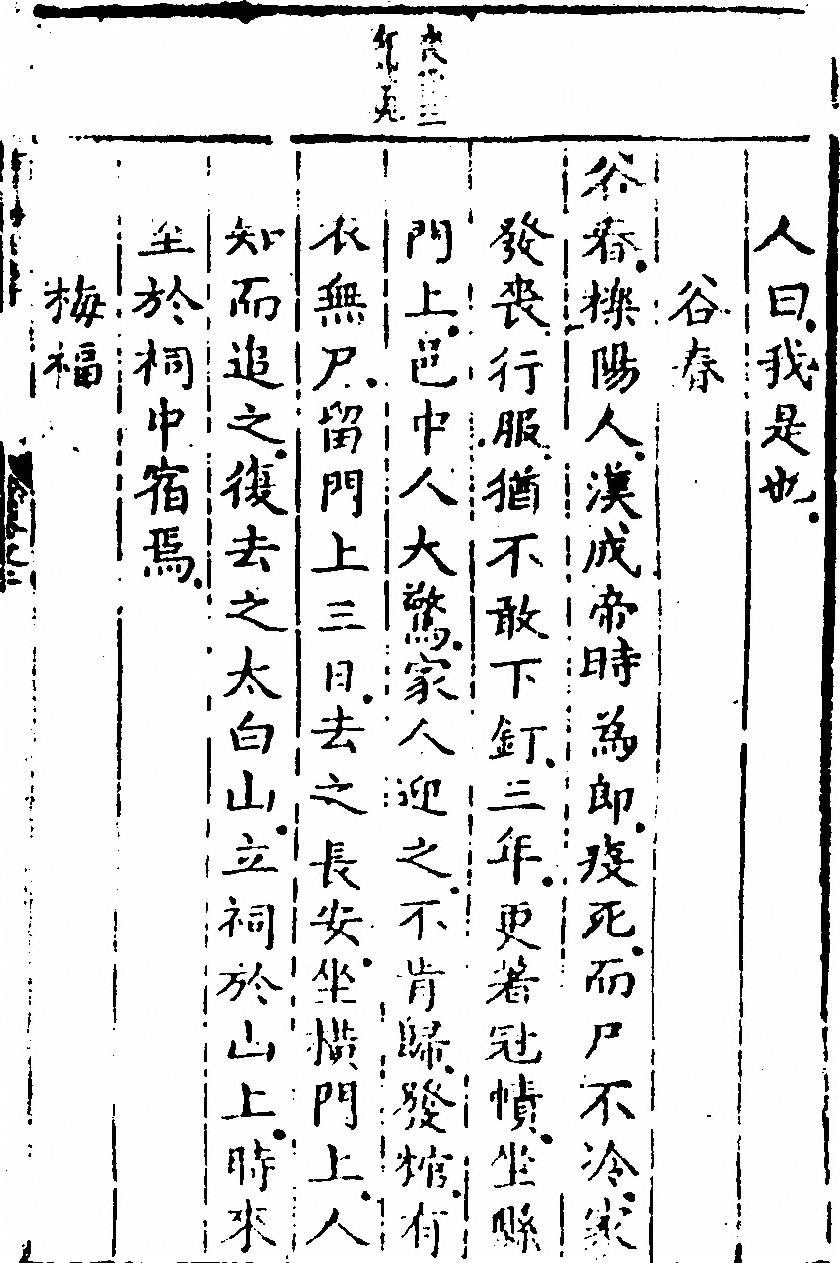 人曰我是也
谷春
谷春櫟陽人漢成帝時為郎疫死而尸不冷家
發喪行服猶不敢下釘三年更著冠幘坐縣
門上邑中人大驚家人迎之不肯歸發棺有
衣無尸留門上三日去之長安坐橫門上人
知而追之復去之太白山立祠於山上時來
至於祠中宿焉
梅福